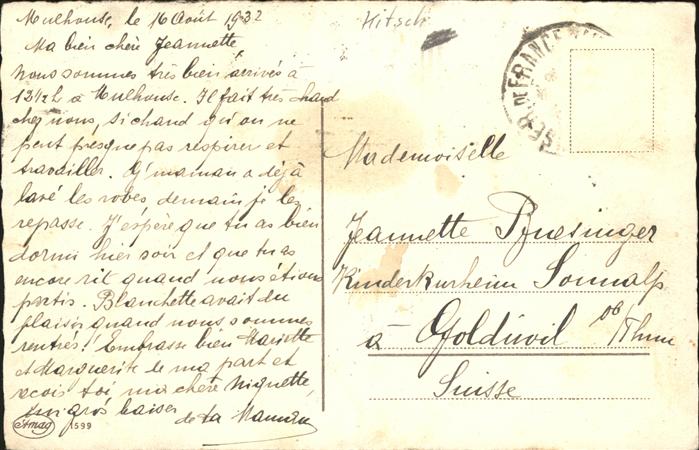 Mulhouse, le 16 Août 1932
Ma bien chère Jeannette,
Nous sommes très bien arrivés à
13½ h à Mulhouse. Il fait très chaud
chez nous, si chaud qu'on ne
peut presque pas respirer et
travailler. maman a déjà
lavé les robes, demain je les
repasse. J'espère que tu as bien
dormi hier soir et que tu as
encore rit quand nous étions
partis. Blanchette avait du
plaisir quand nous sommes
rentrés! Embrasse bien Mariette
et Marguerite de ma part et
reçois toi, ma chère Niquette,
un gros baiser
de ta Maman
Amag 1599
Kitsch
DE FRANCE
Mademoiselle
Jeannette Buesinger
Kinderkurheim Sonnalp
à Goldiwil ob/Thun
Suisse